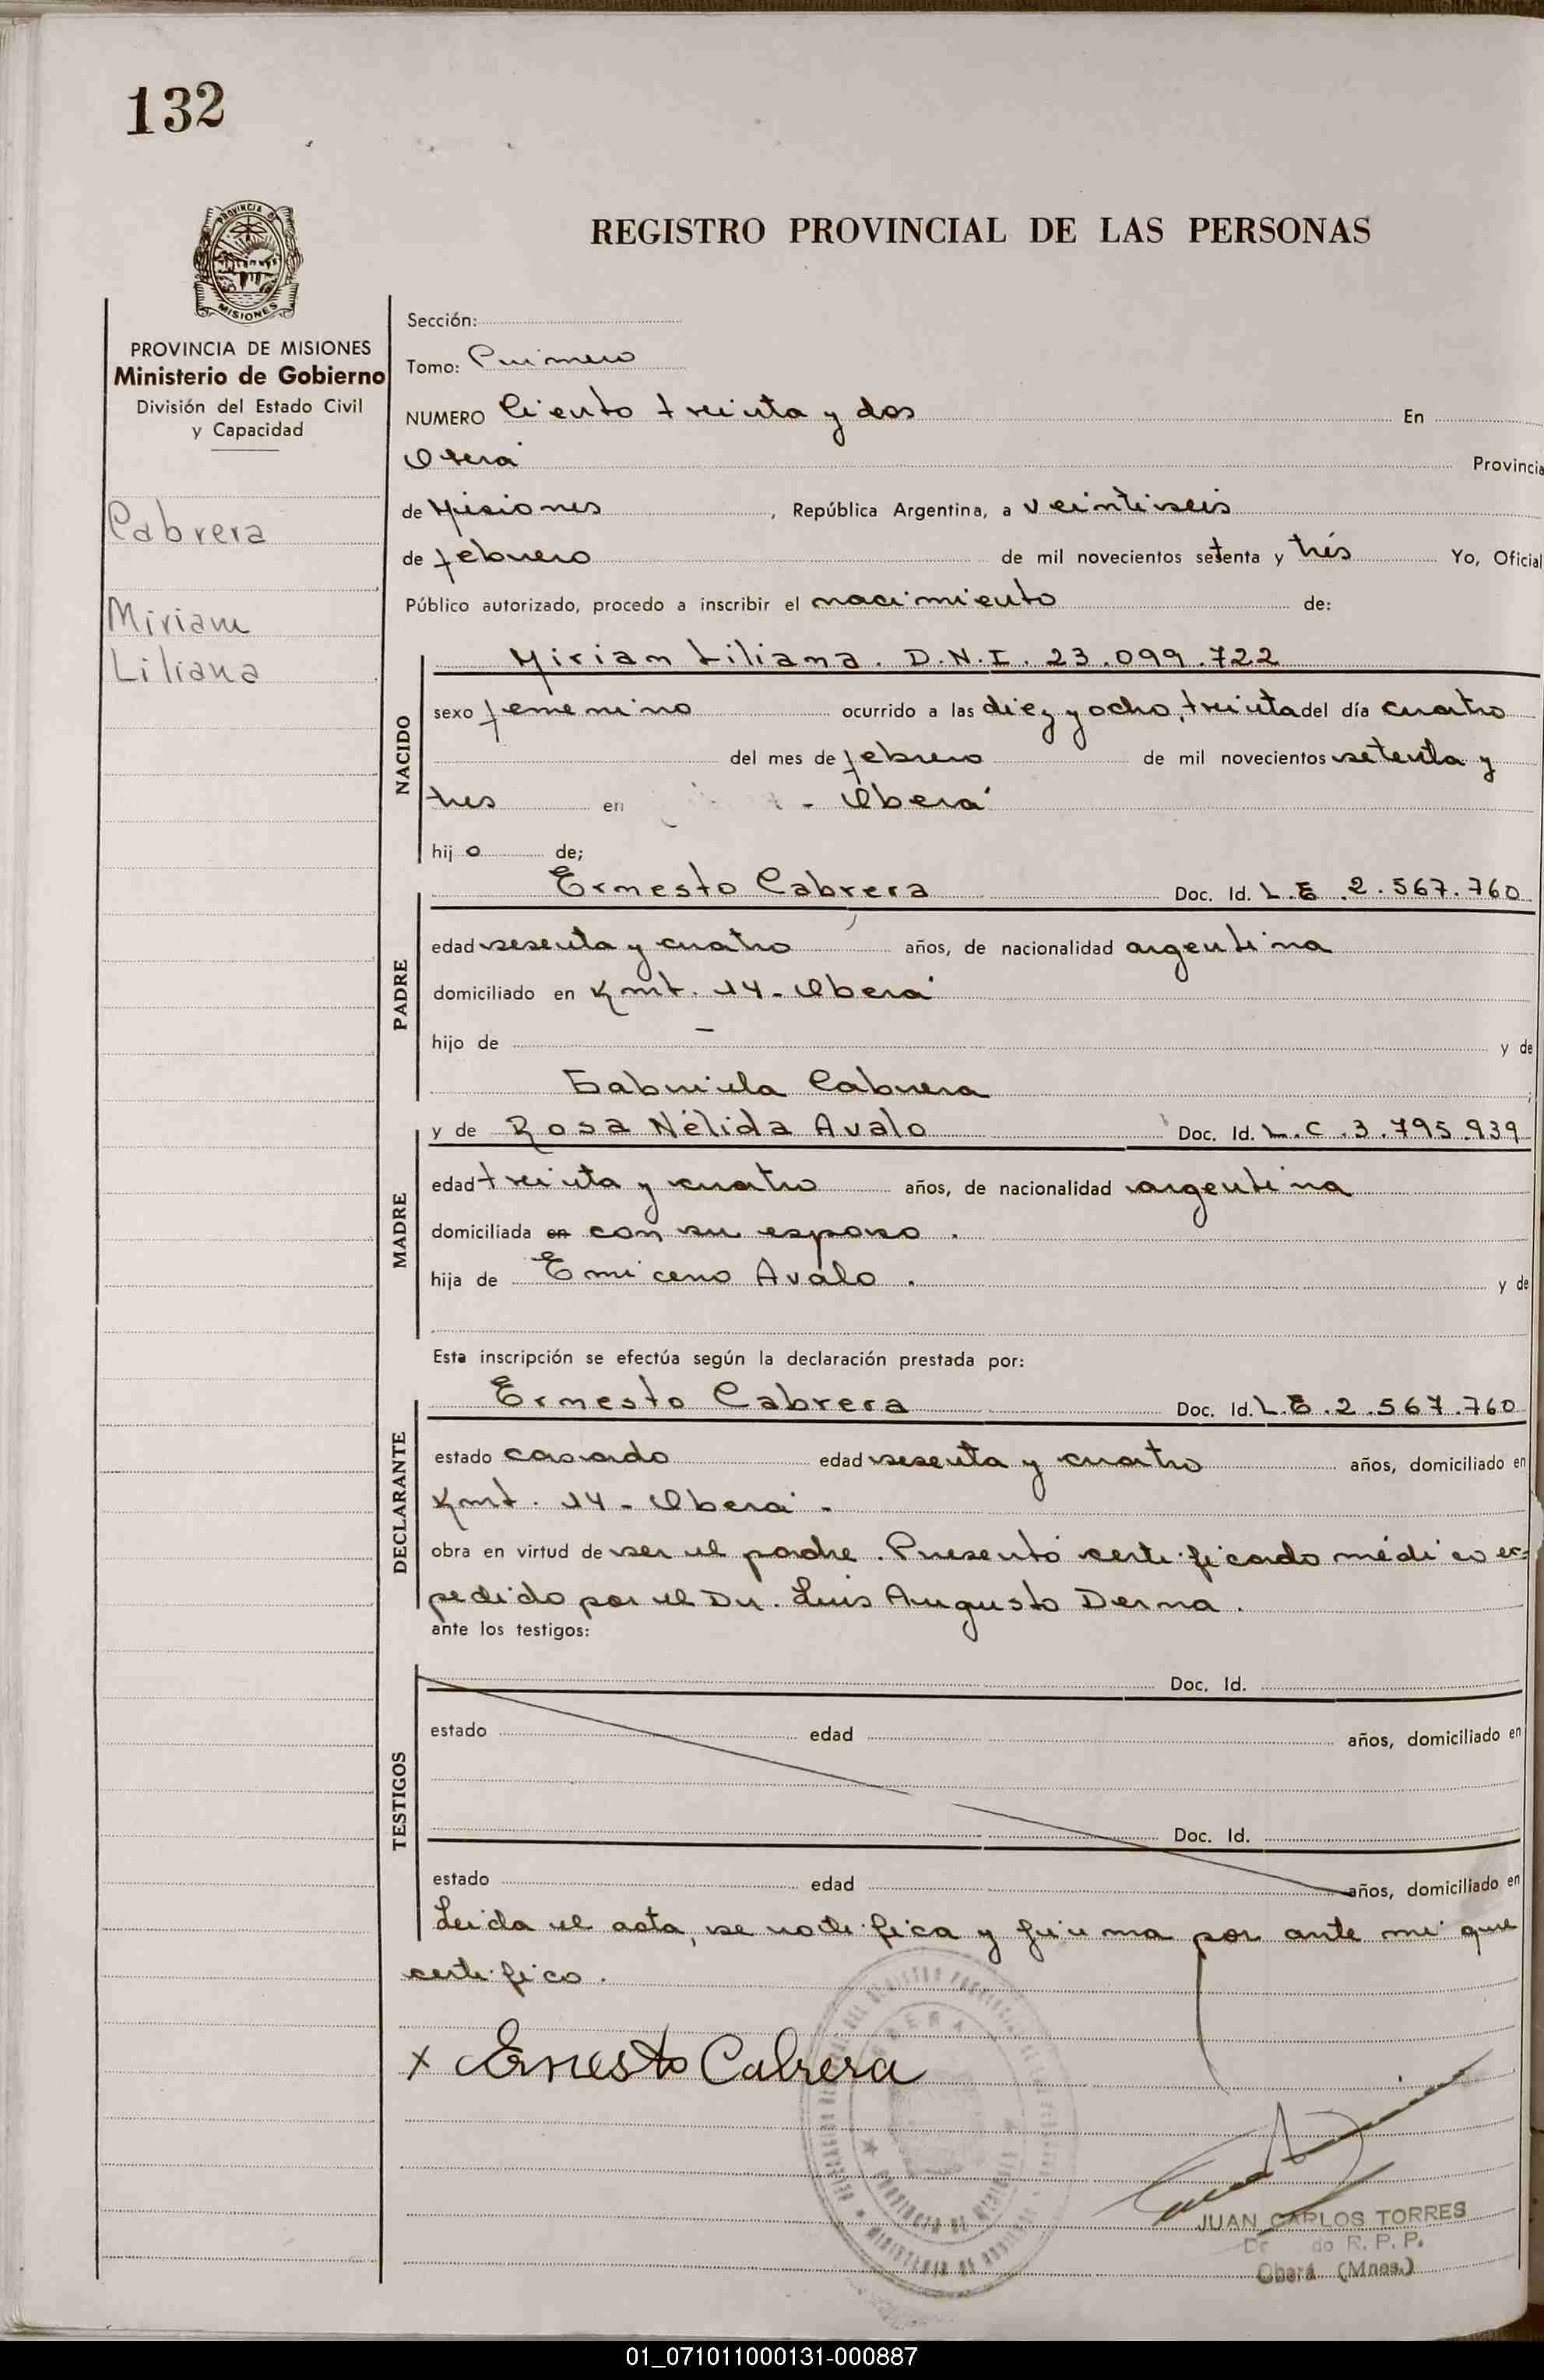 132
PROVINCIA DE
MISIONES
PROVINCIA DE MISIONES
Ministerio de Gobierno
División del Estado Civil
y Capacidad
Cabrera
Miriam
Liliana
REGISTRO PROVINCIAL DE LAS PERSONAS
Sección:
Tomo: Primero
NUMERO Ciento treinta y dos En
Oberá Provincia
de Misiones, República Argentina, a veintiseis
de febrero de mil novecientos setenta y trés Yo, Oficial
Público autorizado, procedo a inscribir el nacimiento de:
NACIDO
Mirian Liliana. D.N.I. 23.099.722
sexo femenino ocurrido a las diez y ocho, treinta del día cuatro
del mes de febrero de mil novecientos setenta y
tres en - Oberá
hijo de;
PADRE
Ernesto Cabrera Doc. Id. L.E. 2.567.760
edad sesenta y cuatro años, de nacionalidad argentina
domiciliado en Kmt. 14 - Oberá
hijo de — y de
Gabriela Cabrera
MADRE
y de Rosa Nélida Avalo Doc. Id. L.C. 3.795.939
edad treinta y cuatro años, de nacionalidad argentina
domiciliada en con su esposo.
hija de Emiceno Avalo. y de
Esta inscripción se efectúa según la declaración prestada por:
DECLARANTE
Ernesto Cabrera Doc. Id. L.E. 2.567.760
estado casado edad sesenta y cuatro años, domiciliado en
Kmt. 14 - Oberá -
obra en virtud de ser el padre. Presentó certificado médico ex-
pedido por el Dr. Luis Augusto Derna.
ante los testigos:
TESTIGOS
Doc. Id.
estado edad años, domiciliado en
Doc. Id.
estado edad años, domiciliado en
Leida el acta, se notifica y firma por ante mi que
certifico.
x Ernesto Cabrera
JUAN CARLOS TORRES
do R. P. P.
Oberá (Mnes.)
01_071011000131-000887